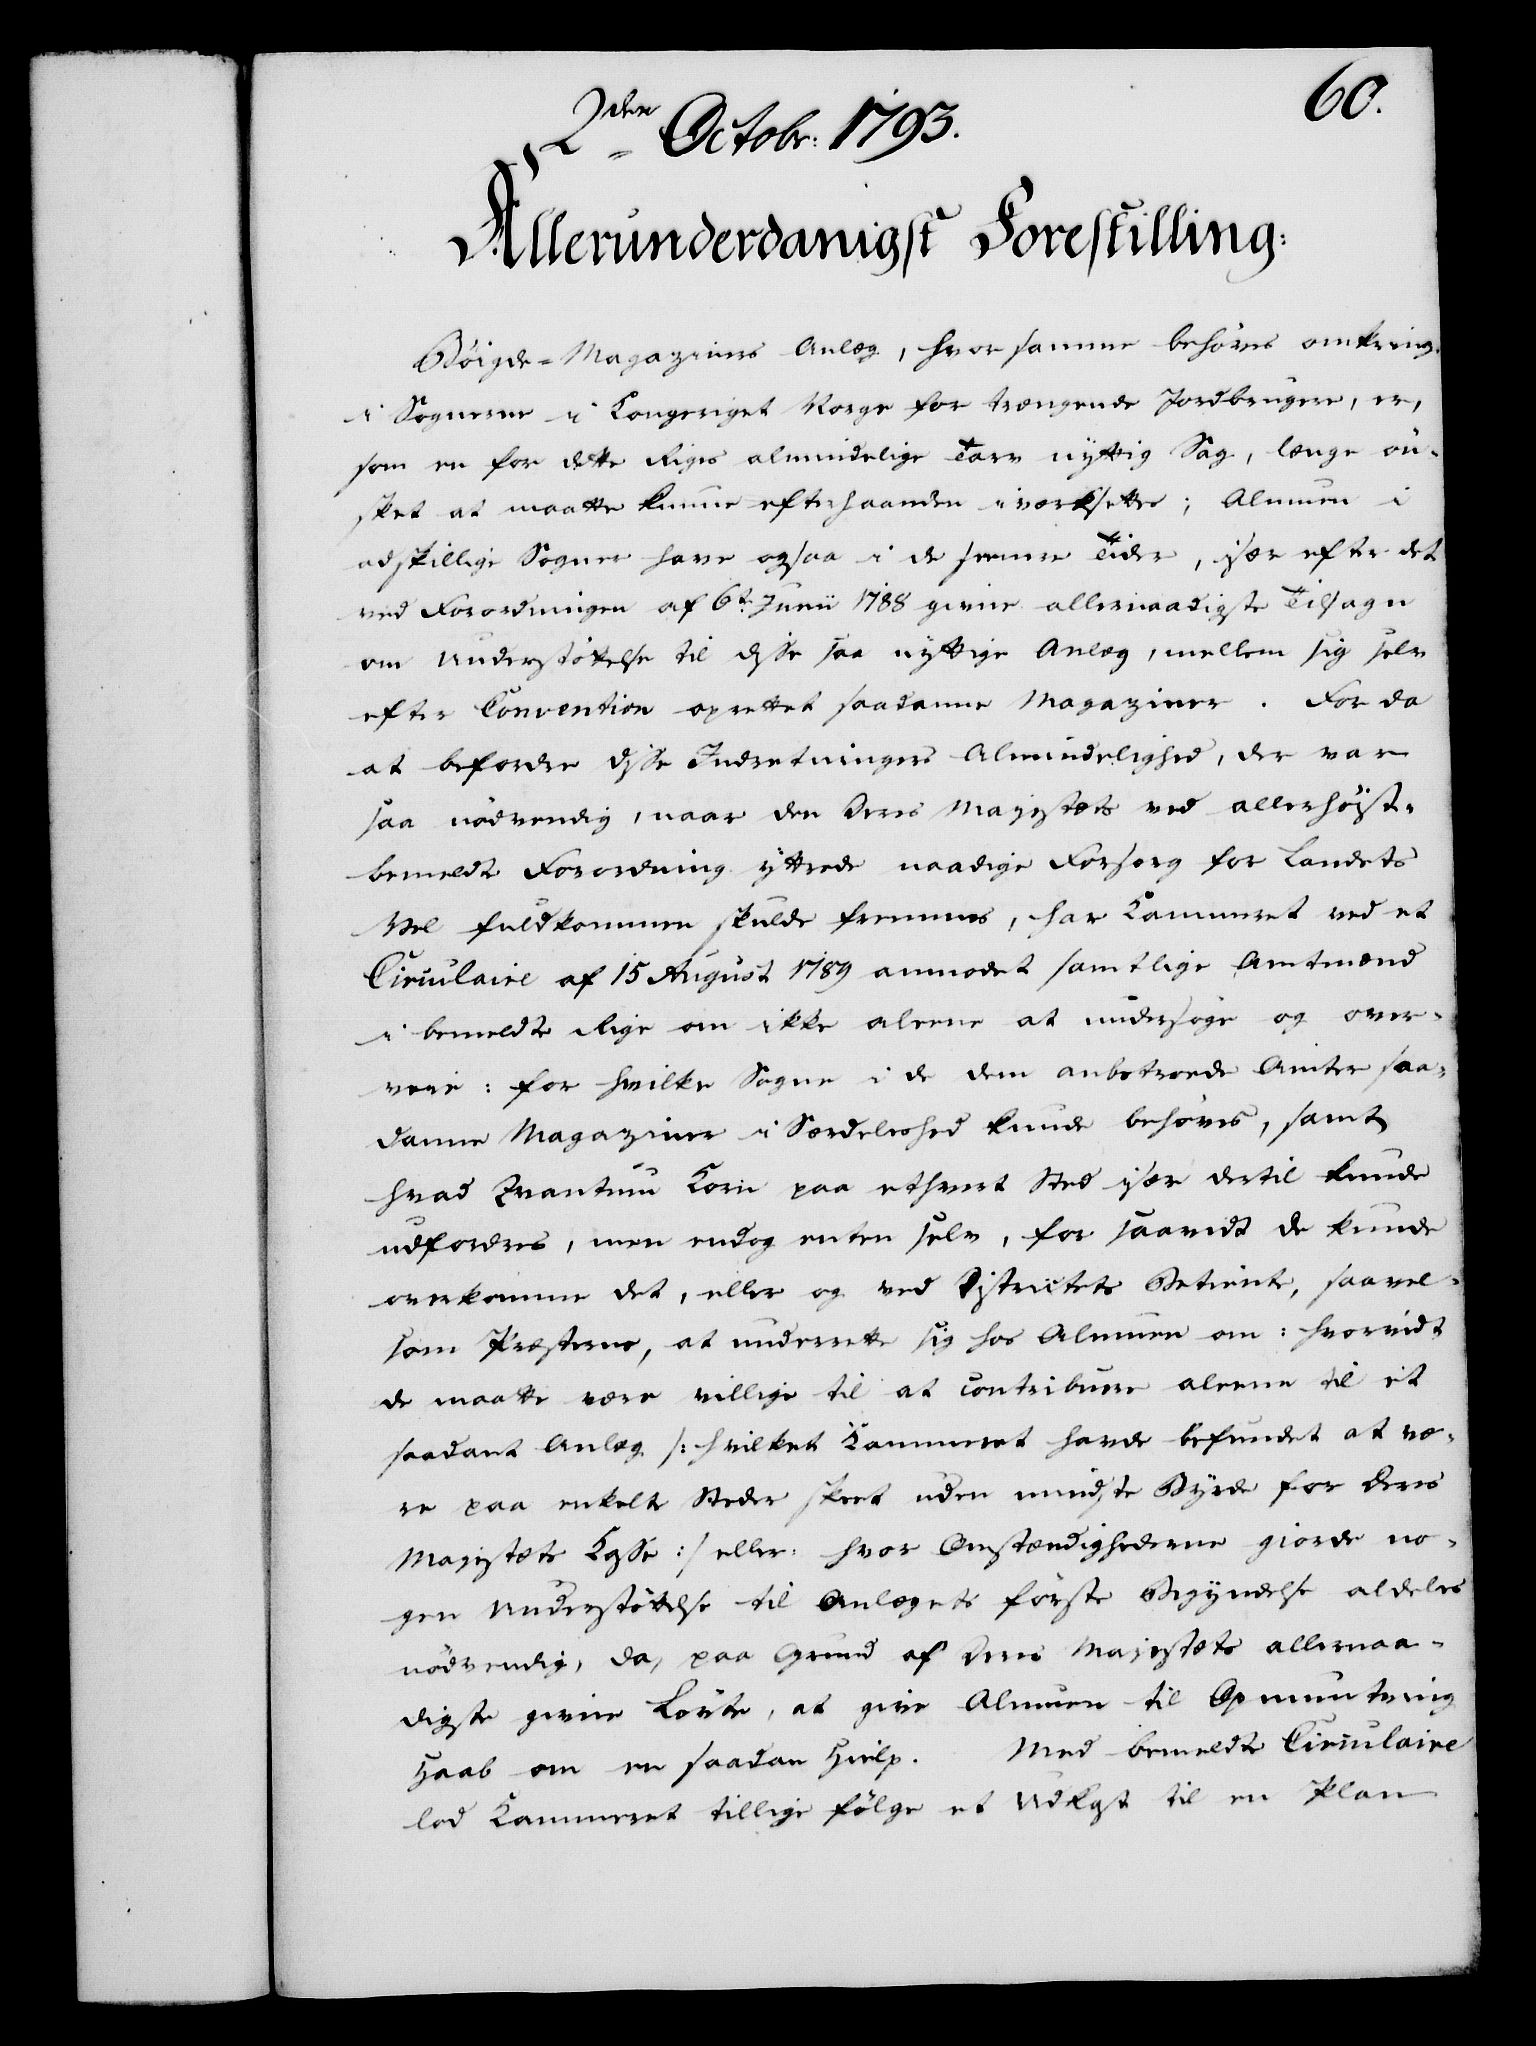 60.
2den Octobr: 1793.
Allerunderdanigst Forestilling:
Böigde-Magaziners Anlæg, hvor samme behöves omkring
i Sognerne i Kongeriget Norge for trængende Jordbrugere, er,
som en for dette Riges almindelige Tarv nyttig Sag, længe ön-
sket at maatte kunne efterhaanden iværksettes; Almuen i
adskillige Sogner have ogsaa i de senere Tider, især efter det
ved Forordningen af 6te Junii 1788 givne allernaadigste Tilsagn
om Understöttelse til disse saa nyttige Anlæg, mellem sig selv
efter Convention oprettet saadanne Magaziner. For da
at befordre disse Indretningers Almindelighed, der var
saa nödvendig, naar den Deres Majestæts ved allerhöist-
bemeldte Forordning yttrede naadige Forsorg for Landets
Vel fuldkommen skulde fremmes, har Kammeret ved et
Circulaire af 15 August 1789 anmodet samtlige Amtmænd
i bemeldte Rige om ikke alene at undersöge og over-
veie: for hvilke Sogne i de dem anbetroede Amter saa-
danne Magaziner i Særdeleshed kunde behöves, samt
hvad Qvantum Korn paa ethvert Sted især dertil kunde
udfordres, men endog enten selv, for saavidt de kunde
overkomme det, eller og ved Districtets Betiente, saavel-
som Præsterne, at underrette sig hos Almuen om: hvorvidt
de maatte være villige til at contribuere alene til et
saadant Anlæg /: hvilket Kammeret havde befundet at væ-
re paa enkelte Steder skeet uden mindste Byrde for Deres
Majestæts Casse :/ eller: hvor Omstændighederne giorde no-
gen Understöttelse til Anlægets förste Begyndelse aldeles
nödvendig, da, paa Grund af Deres Majestæts allernaa-
digste givne Löfte, at give Almuen til Opmuntring
Haab om en saadan Hielp. Med bemeldte Circulaire
lod Kammeret tillige fölge et Udkast til en Plan